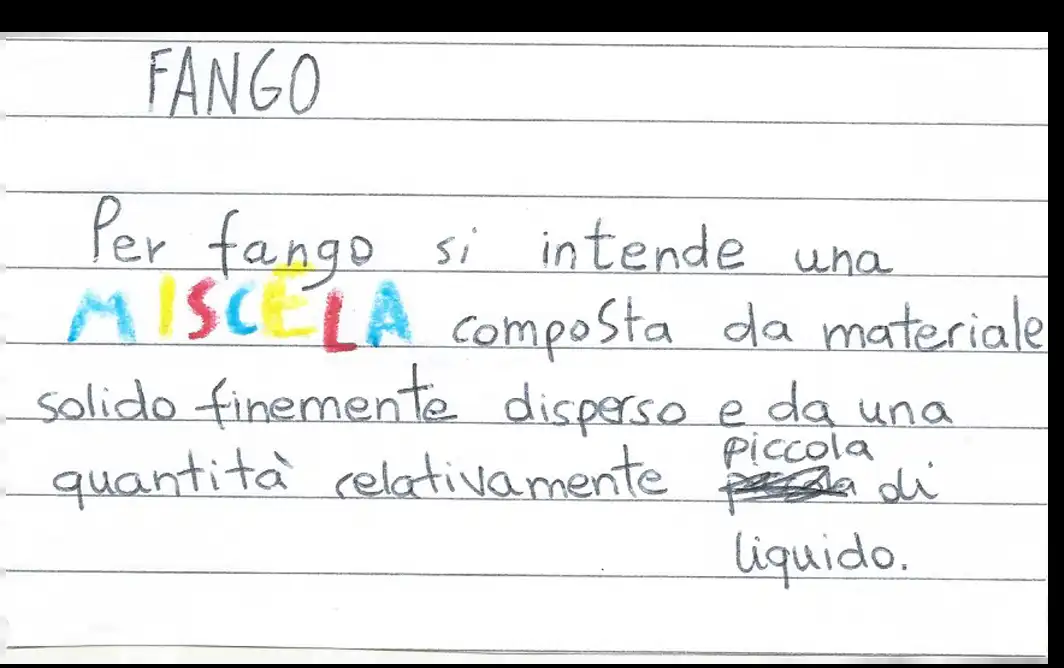 FANGO
Per fango si intende una
MISCELA composta da materiale
solido finemente disperso e da una
quantità relativamente piccola di
liquido.